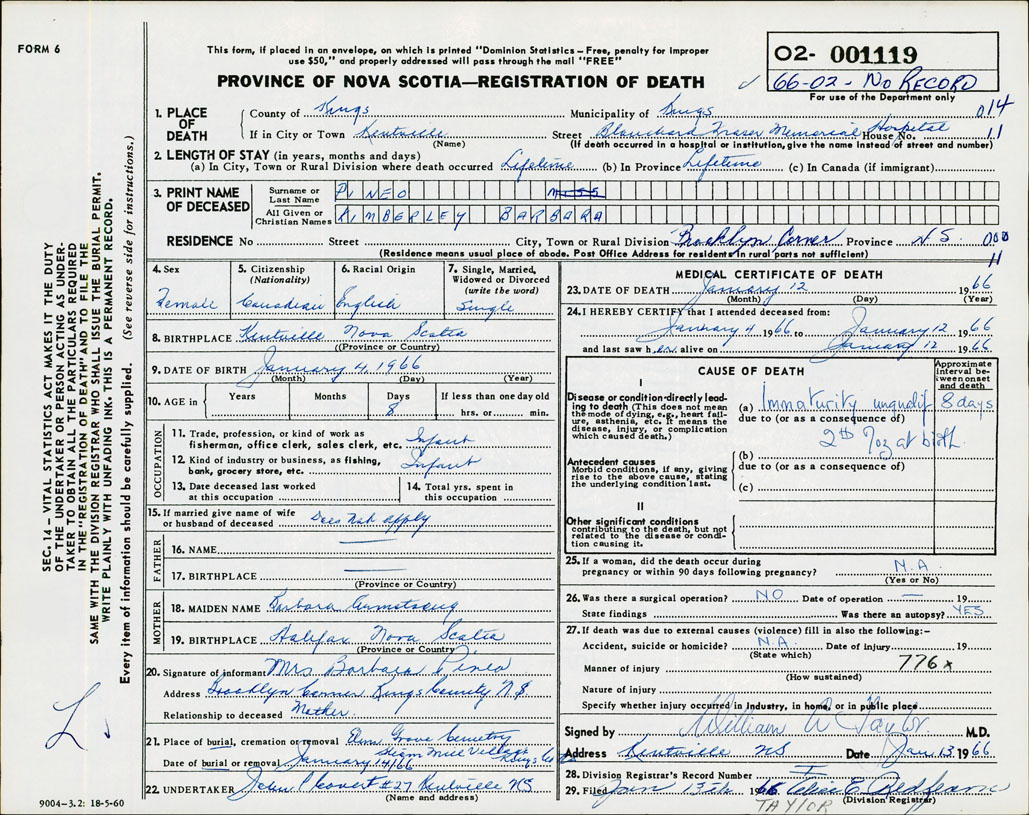 FORM 6
This form, if placed in an envelope, on which is printed "Dominion Statistics – Free, penalty for improper
use $50," and properly addressed will pass through the mail "FREE"
PROVINCE OF NOVA SCOTIA—REGISTRATION OF DEATH
02- 001119
66-02- NO RECORD
For use of the Department only
SEC. 14 – VITAL STATISTICS ACT MAKES IT THE DUTY
OF THE UNDERTAKER OR PERSON ACTING AS UNDER-
TAKER TO OBTAIN ALL THE PARTICULARS REQUIRED
IN THE "REGISTRATION OF DEATH" AND TO FILE THE
SAME WITH THE DIVISION REGISTRAR WHO SHALL ISSUE THE BURIAL PERMIT.
WRITE PLAINLY WITH UNFADING INK. THIS IS A PERMANENT RECORD.
Every item of information should be carefully supplied. (See reverse side for instructions.)
1. PLACE OF DEATH
County of Kings Municipality of Kings 014
If in City or Town Kentville Street Blanchard Fraser Memorial Hospital House No. 11
(Name) (If death occurred in a hospital or institution, give the name instead of street and number)
2. LENGTH OF STAY (in years, months and days)
(a) In City, Town or Rural Division where death occurred Lifetime (b) In Province Lifetime (c) In Canada (if immigrant)
3. PRINT NAME OF DECEASED
Surname or Last Name PINEO MISS
All Given or Christian Names KIMBERLEY BARBARA
RESIDENCE No Street City, Town or Rural Division Brooklyn Corner Province N.S. 000
(Residence means usual place of abode. Post Office Address for residents in rural parts not sufficient) 11
4. Sex Female
5. Citizenship (Nationality) Canadian
6. Racial Origin English
7. Single, Married, Widowed or Divorced (write the word) Single
8. BIRTHPLACE Kentville Nova Scotia
(Province or Country)
9. DATE OF BIRTH January 4, 1966
(Month) (Day) (Year)
10. AGE in Years Months Days 8 If less than one day old hrs. or min.
OCCUPATION
11. Trade, profession, or kind of work as
fisherman, office clerk, sales clerk, etc. Infant
12. Kind of industry or business, as fishing,
bank, grocery store, etc. Infant
13. Date deceased last worked at this occupation
14. Total yrs. spent in this occupation
15. If married give name of wife
or husband of deceased Does Not apply
FATHER
16. NAME —
17. BIRTHPLACE —
(Province or Country)
MOTHER
18. MAIDEN NAME Barbara Armstrong
19. BIRTHPLACE Halifax Nova Scotia
(Province or Country)
20. Signature of informant Mrs Barbara Pineo
Address Brooklyn Corner Kings County N S
Relationship to deceased Mother
21. Place of burial, cremation or removal Elm Grove Cemetery
Steam Mill Village
Date of burial or removal January 14/66 Kings Co
22. UNDERTAKER #27 Kentville NS
(Name and address)
MEDICAL CERTIFICATE OF DEATH
23. DATE OF DEATH January 12 1966
(Month) (Day) (Year)
24. I HEREBY CERTIFY that I attended deceased from:
January 4 1966 to January 12 1966
and last saw her alive on January 12 1966
CAUSE OF DEATH
Approximate interval between onset and death
I
Disease or condition directly lead-
ing to death (This does not mean
the mode of dying, e.g., heart fail-
ure, asthenia, etc. It means the
disease, injury, or complication
which caused death.)
(a) Immaturity unqualif 8 days
due to (or as a consequence of)
2 lb 7 oz at birth.
Antecedent causes
Morbid conditions, if any, giving
rise to the above cause, stating
the underlying condition last.
(b)
due to (or as a consequence of)
(c)
II
Other significant conditions
contributing to the death, but not
related to the disease or condi-
tion causing it.
25. If a woman, did the death occur during
pregnancy or within 90 days following pregnancy? N.A.
(Yes or No)
26. Was there a surgical operation? NO Date of operation — 19
State findings Was there an autopsy? YES
27. If death was due to external causes (violence) fill in also the following:–
Accident, suicide or homicide? N.A. Date of injury 19
(State which)
Manner of injury 776x
(How sustained)
Nature of injury
Specify whether injury occurred in industry, in home, or in public place
Signed by William W Taylor M.D.
Address Kentville NS Date Jan 13 1966
28. Division Registrar's Record Number
29. Filed Jan 13th 1966
TAYLOR (Division Registrar)
9004–3.2: 18-5-60